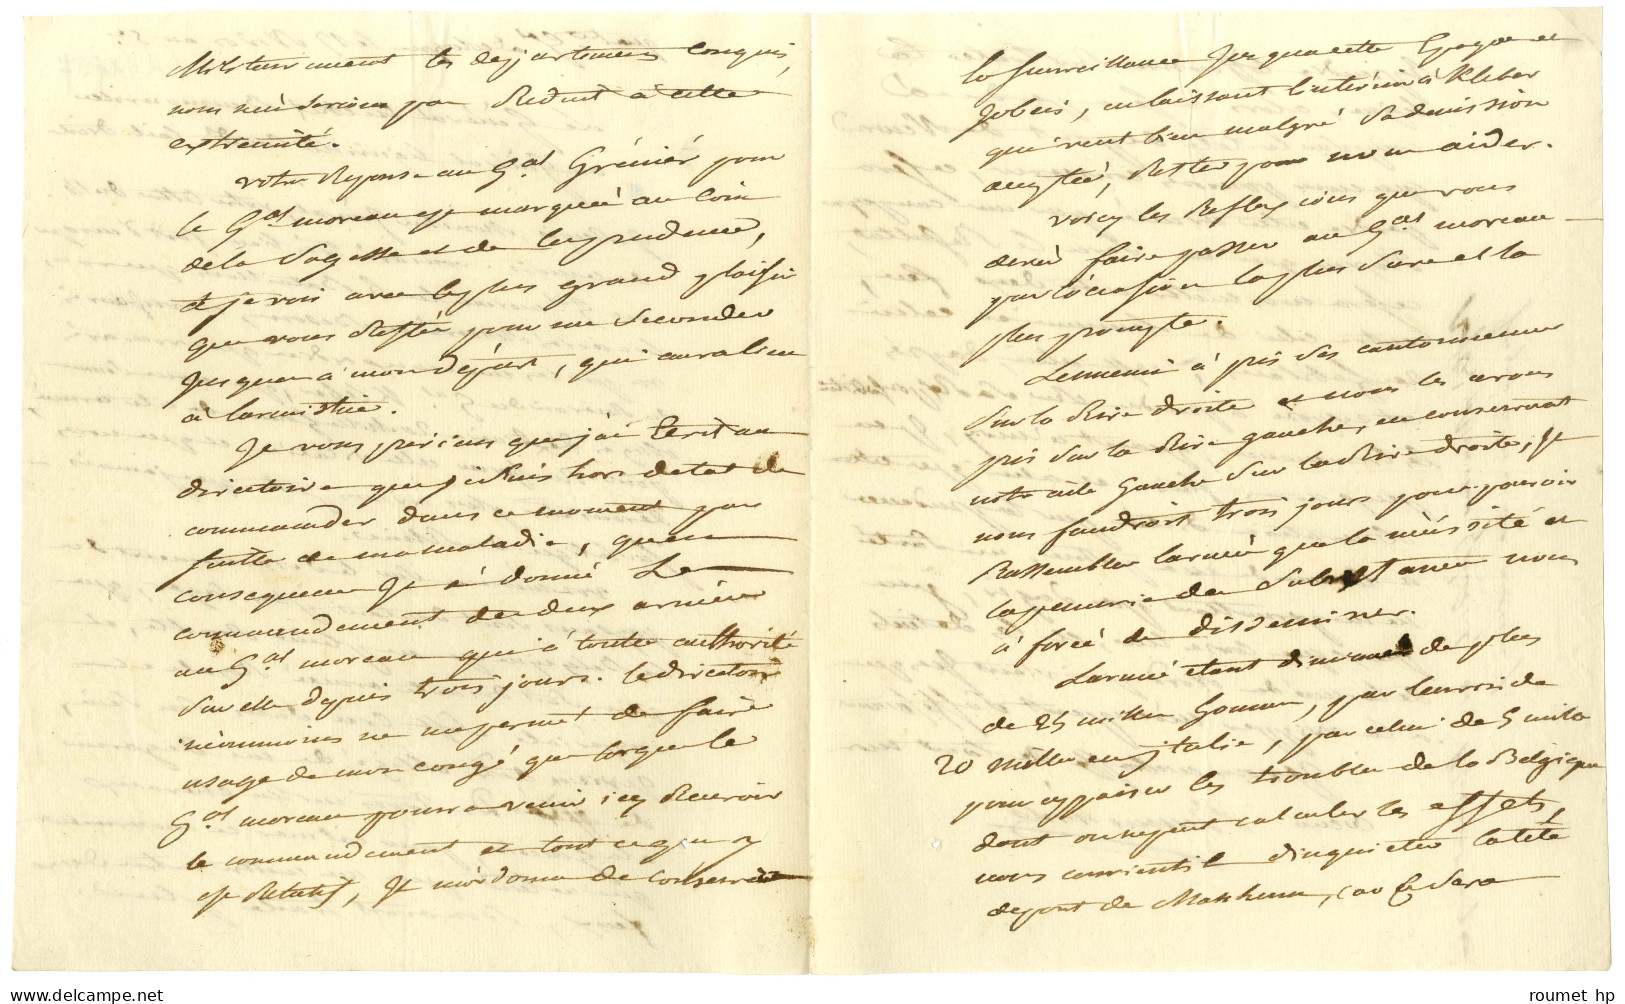 Militairement les departemens Conquis,
nous ne serions pas Reduit à cette
extremité.
votre Reponse au G.al Grénier pour
le G.al moreau est marquée au Coin
de la Sagesse et de la prudence,
et je vois avec le plus grand plaisir
que vous Restée pour me Seconder
Jusqua à mon départ, qui aura lieu
à larmistice.
Je vous préviens que j'ai Ecrit au
directoire que je suis hors detat de
commander dans ce moment par
suitte de ma maladie, quen
consequence Je à donné Le
commandement des deux armées
au G.al moreau qui à toutte authorité
Sur elle depuis trois jours. le directoire
néanmoins ne me permet de faire
usage de mon congé que lorque le
G.al moreau pourra venir icy Recevoir
le commandement et tout ce qui y
est Relatif, Il m'ordonne de conserver
la Surveillance Jusqua cette Epoque et
Jobeis, en laissant lintérim à Kleber
qui veut bien malgré Sa demission
acceptée, Rester pour nous aider.
voicy les Reflexions que vous
devéz faire passer au G.al moreau
par loccasion la plus Sure et la
plus prompte
Lennemi à pris Ses cantonnemens
Sur la Rive droite et nous les avons
pris Sur la Rive gauche, en conservant
notre aile Gauche Sur la Rive droite, Il
nous faudroit trois jours pour pouvoir
Rassembler larmée que la nécéssité et
la penurie des Subsistances nous
à forcé de disseminer.
Larmée étant diminuée de plus
de 25 mille homme, par lenvoi de
20 mille en jtalie, par celui de 5 mille
pour appaiser les troubles de la Belgique
dont on ne peut calculer les effets,
nous convientil dinquieter la tête
de pont de Manheim, car ce Sera
roumet hp